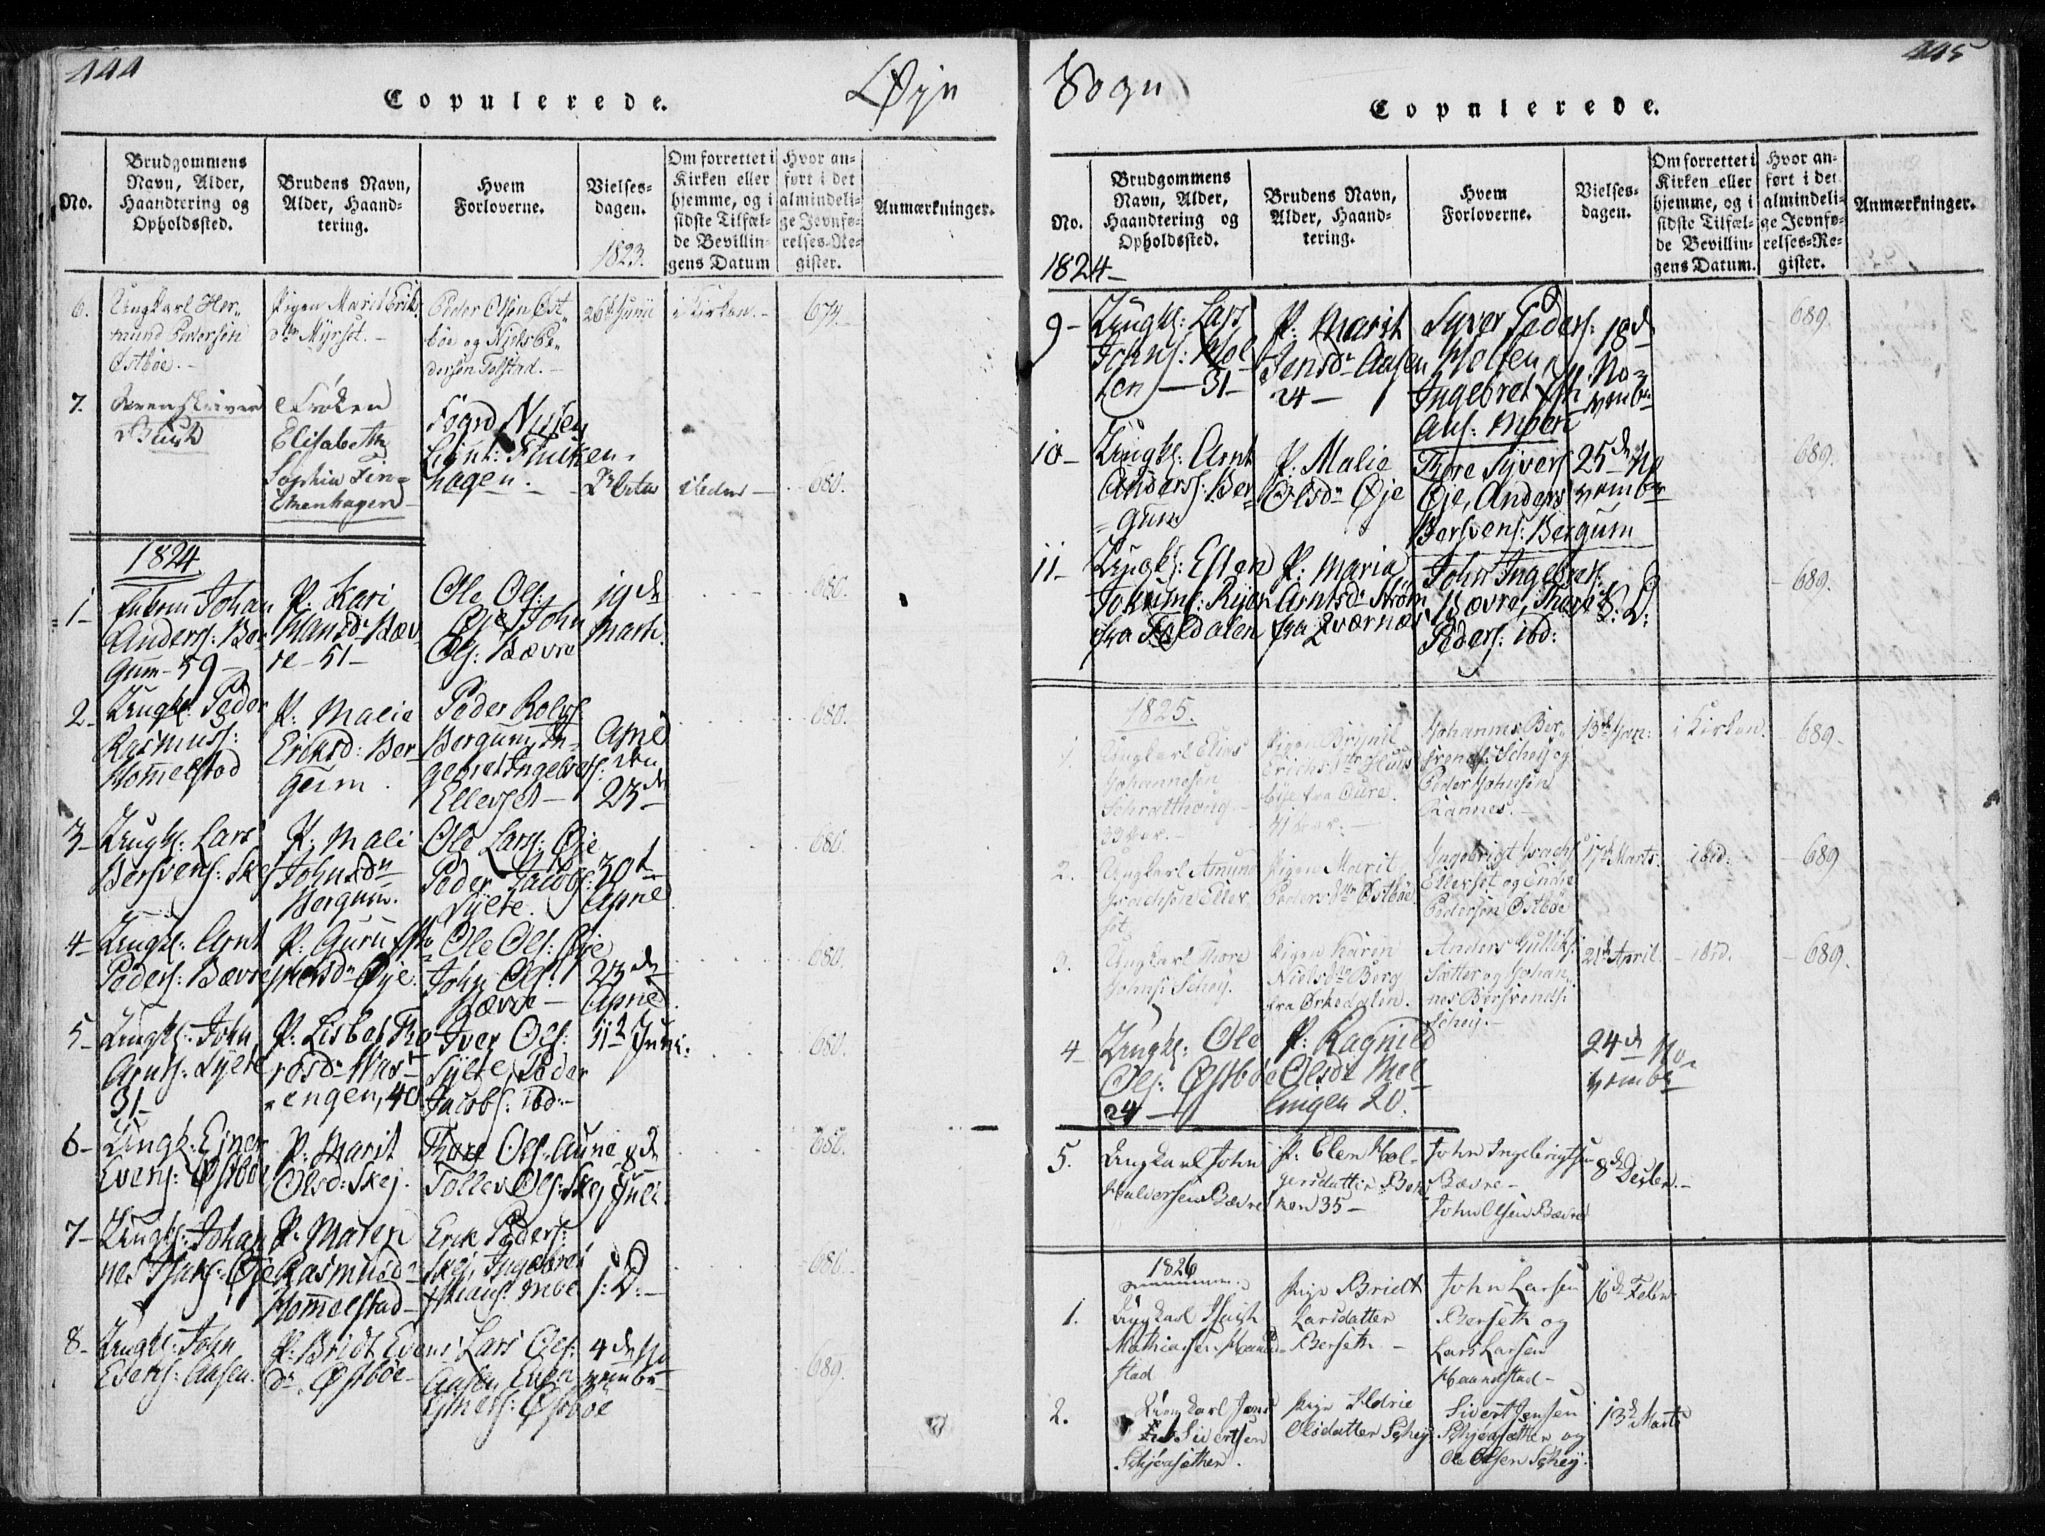 444
Copulerede.
Øye
No.
Brudgommens
Navn, Alder,
Haandtering og
Opholdssted.
Brudens Navn,
Alder, Haand-
tering.
Hvem
Forloverne.
Vielses-
dagen.
1823.
Om forrettet i
Kirken eller
hjemme, og i
sidste Tilfæl-
de Bevillin-
gens Datum
Hvor an-
ført i det
almindeli-
ge Jevnfø-
relses-Re-
gister.
Anmærkninger.
6.
Ungkarl Her-
mund Pedersen
Østbøe.
Pigen Marit Eriks
dtr Myrset.
Peder Olsen Øst-
bøe og Niels Pe-
dersen Tølstad.
26de Junii
i Kirken.
679
7.
Sorenskriver
Busch
Frøken
Elisabeth
Sophia Fin-
kenhagen
Fogd Nissen
Lieut: Finken-
hagen.
680.
1824.
1
Johan
Anders: Ber-
gum - 59
P. Kari
Hansdr Bæv-
re - 51
Ole Ols:
Øje, John
Ols: Bævre
19de
Marts.
680.
2
Ungk: Peder
Rasmuss:
Hommelstad
P. Malie
Eriksd: Ber-
gum.
Peder Rolvs:
Bergum, In-
gebret Ingebrets:
Ellevset
April
den
23de
680.
3
Ungk: Lars
Bersvens: Skej
P. Mali
Johnsdr
Bergum.
Ole Lars: Øje
Peder Jacobs:
Sylte.
30te
April
680.
4
Ungk: Arnt
Peders: Bævre
P. Guru
Øje.
Ole Ols: Øje
John Ols:
Bævre
23de
April
680.
5
Ungk: John
Arnts: Sylte
31
P. Lisbet To-
resdr Has-
engen, 40
Iver Ols:
Sylte, Peder
Jacobs: ibd:
11te Juni.
680.
6
Ungk: Ejner
Evens: Østbøe
P. Marit
Olsd: Skej.
Thore Ols: Aune
Tollev Ols: Skej
8de
Juli.
680.
7
Ungk: Johan
nes Øje
P. Maren
Rasmusd:
Hommelstad
Erik Peders:
Skej, Ingebret
Moe
S: D:
680.
8
Ungk: John
Estens: Aasen.
P. Bridt Evens
dr. Østbøe
Lars Ols:
Aasen, Even
Ejners: Østbøe
4de No
vember
689.
445
Sogn
Copulerede.
No.
Brudgommens
Navn, Alder,
Haandtering og
Opholdssted.
Brudens Navn,
Alder, Haand-
tering.
Hvem
Forloverne.
Vielses-
dagen.
Om forrettet i
Kirken eller
hjemme, og i
sidste Tilfæl-
de Bevillin-
gens Datum.
Hvor an-
ført i det
almindeli-
ge Jevnfø-
relses-Re-
gister.
Anmærkninger.
1824
9
Ungk: Lars
Johns: Hol-
ten - 31
P. Marit
Jensdr Aasen
24
Syver Peders:
Holten,
Ingebret
Moen
18de
No-
vember
689.
10
Ungk: Arnt
Anders: Ber-
gum
P. Malie
Olsdr Øje
Thore Syvers:
Øje, Anders
Bersvens: Bergum
25de No
vember
689.
11
Ungk: Esten
fra Foldalen
P. Maria
Arntsdr Strøm
fra Qværnæs
John Ingebrets:
Bævre, Thore
Peders: ibd:
S: D:
689.
1825.
1.
Ungkarl Elias
Johannesen
33 Aar.
Pigen Brynil
Erichsdtr Huus-
bye fra Øure.
31 Aar.
Johannes Ber-
svends: Schey og
Peder Johnsen
Kannes.
13de Jan:
i Kirken.
689
2.
Ungkarl Amund
Isachsen Ellev-
set
Pigen Marit
Pedersdtr Østbøe
Ingebrigt Isachs:
Ellevset og Endre
Pedersen Østbøe
17de Marts
ibid:
689
3.
Ungkarl Thore
Johns: Schey.
Pigen Karen
Nielsdtr Borg
fra Ørkedalen.
Anders Gulliks:
Sætter og Johan-
nes Bersvends:
Schey.
21de April
ibid.
689.
4
Ungk: Ole
Ols: Østbøe
24
P. Ragnild
Olsdr Mel-
lingen 20.
24de No-
vember
5.
Ungkarl John
Halvorsen Bævre
P: Elen Hol-
gersdatter
35
John Ingebrigtsen
Bævre
John Olsen Bævre
8de Decbr.
1826
1.
Ungkarl
Mathiasen Haand-
stad
Pige Bridt
Larsdatter
Berseth
John Larsen
Berseth og
Lars Larsen
Haandstad
16de Febr.
2.
Ungkarl Jens
Sivertsen
Schjøasæther.
Pige Ildrie
Olsdatter Schey
Sivert Jensen
Schjøasæther og
Ole Olsen Schey.
13de Marts